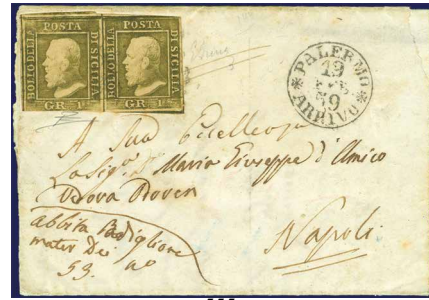 BOLLO DELLA POSTA DI SICILIA GR 1
BOLLO DELLA POSTA DI SICILIA GR 1
PALERMO
19
59
ARRIVO
A Sua Eccellenza
La Sig.ra Maria Giuseppe d'Amico
Vedova
abbita
mater Dei
53
Napoli